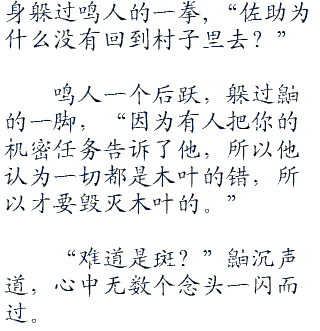 身躲过鸣人的一拳，“佐助为
什么没有回到村子里去？”
鸣人一个后跃，躲过鼬
的一脚，“因为有人把你的
机密任务告诉了他，所以他
认为一切都是木叶的错，所
以才要毁灭木叶的。”
“难道是斑？”鼬沉声
道，心中无数个念头一闪而
过。